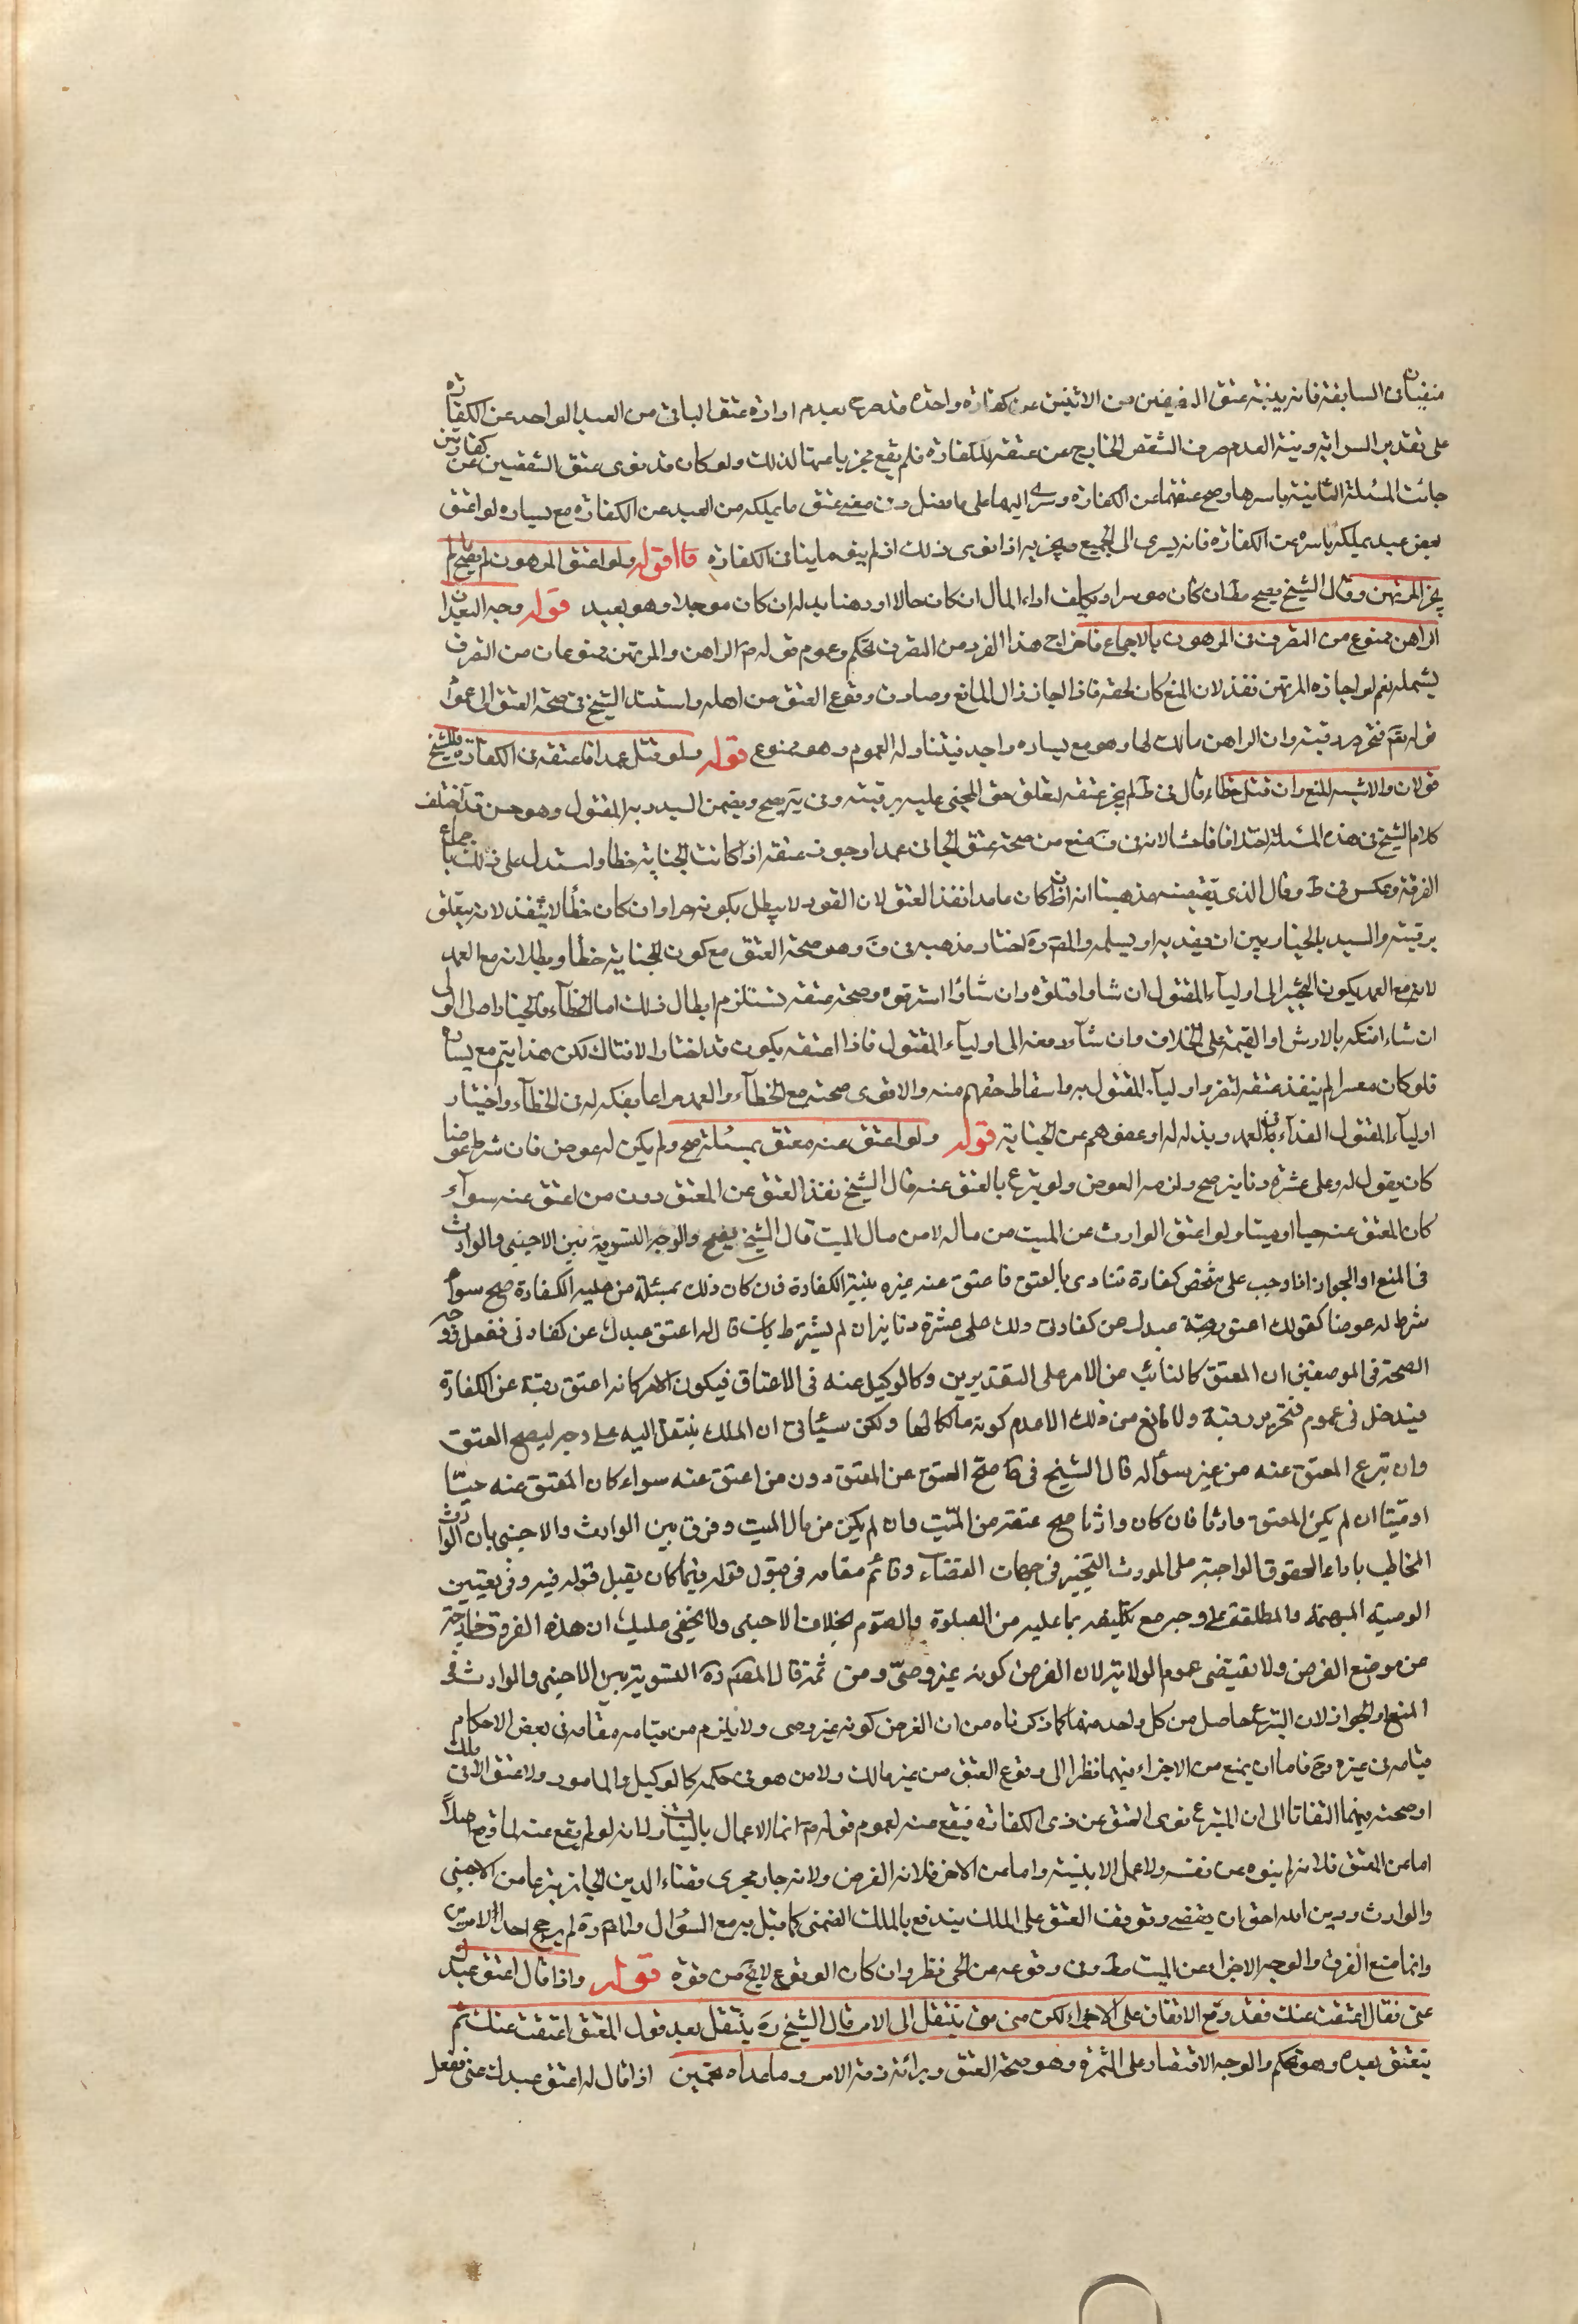 منفيتان في السابقة فانه بنية عتق النصفين من الاثنين عن كفارة واحدة قد صرح بعدم ارادة عتق الباقي من العبد الواحد عن الكفارة
على تقدير السراية ونية العدم صرف الشقص الخارج عن عتقه للكفارة فلم يقع مجزيا عنها لذلك ولو كان قد نوى عتق الشقصين عن كفارتين
جائت المسئلة الثانية باسرها وصح عتقهما عن الكفارة وسرى اليهما على ما فصل وفي معنى عتق ما يملكه من العبد عن الكفارة مع يساره لو اعتق
بعض عبد يملكه باسره عن الكفارة فانه يسرى الى الجميع ويجزيه اذا نوى ذلك اذ لم ينو ما ينافي الكفارة قوله ولو اعتق المرهون لم يصح ما لم
يجز المرتهن وقال الشيخ يصح مط ان كان موسرا ويكلف اداء المال ان كان حالا او رهنا بدله ان كان موجلا وهو بعيد قوله وجه البعد ان
الراهن ممنوع من التصرف في المرهون بالاجماع فاخراج هذا الفرد من التصرف تحكم وعموم قوله ص الراهن والمرتهن ممنوعان من التصرف
يشمله نعم لو اجازه المرتهن نفذ لان المنع كان لحقه فاذا اجاز زال المانع وصادف وقوع العتق من اهله واستند الشيخ في صحة العتق الى عموم
قوله تعم فتحرير رقبة وان الراهن مالك لها وهو مع يساره واجد فيتناوله العموم وهو ممنوع قوله ولو قتل عمدا فاعتقه في الكفارة فللشيخ
قولان والاشبه المنع وان قتل خطاء قال في ط لم يجز عتقه لتعلق حق المجني عليه برقبته وفي يه يصح ويضمن السيد دية المقتول وهو حسن قد اختلف
كلام الشيخ في هذه المسئلة اختلافا فاحشا لانه في ف منع من صحة عتق الجاني عمدا وجوز عتقه اذا كانت الجناية خطا واستدل على ذلك باجماع
الفرقة وعكس في ط وقال الذي يقتضيه مذهبنا انه اذا كان عامدا نفذ العتق لان القود لا يبطل بكونه حرا وان كان خطأ لا ينفذ لانه يتعلق
برقبته والسيد بالخيار بين ان يفديه او يسلمه والمصم ره اختار مذهبه في ف وهو صحة العتق مع كون الجناية خطأ وبطلانه مع العمد
لانه مع العمد يكون التخيير الى اولياء المقتول ان شاوا قتلوه وان شاؤا استرقوه وصحة عتقه تستلزم ابطال ذلك اما الخطاء فالخيار الى المولى
ان شاء افتكه بالارش او القيمة على الخلاف وان شاء دفعه الى اولياء المقتول فاذا اعتقه يكون قد اختار الافتكاك لكن هذا يتم مع يساره
فلو كان معسرا لم ينفذ عتقه لتضرر اولياء المقتول به واسقاط حقهم منه والاقوى صحته مع الخطاء والعمد مراعا بفكه له في الخطاء واختيار
اولياء المقتول الفداء في العمد وبذله له او عفوهم عن الجناية قوله ولو اعتق عنه معتق بمسئلته صح ولم يكن له عوض فان شرط عوضا
كان يقول له وعلى عشرة دنانير صح ولزمه العوض ولو تبرع بالعتق عنه قال الشيخ نفذ العتق عن المعتق دون من اعتق عنه سواء
كان المعتق عنه حيا او ميتا ولو اعتق الوارث عن الميت من ماله لا من مال الميت قال الشيخ يصح والوجه التسوية بين الاجنبي والوارث
في المنع او الجواز اذا وجب على شخص كفارة تتادى بالعتق فاعتق عنه غيره بنية الكفارة فان كان ذلك بمسئلة من عليه الكفارة صح سواء
شرط له عوضا كقوله اعتق عبدك عن كفارتي ولك على عشرة دنانير ان لم يشترط بان قال له اعتق عبدك عن كفارتي ففعل ووجه
الصحة في الموضعين ان المعتق كالنائب عن الامر على التقديرين وكالوكيل عنه في الاعتاق فيكون الامر كانه اعتق رقبة عن الكفارة
فيدخل في عموم فتحرير رقبة ولا مانع من ذلك الا عدم كونه مالكا لها ولكن سيأتي ان الملك ينتقل اليه على وجه ليصح العتق
وان تبرع المعتق عنه من غير سؤاله قال الشيخ في ط صح العتق عن المعتق دون من اعتق عنه سواء كان المعتق عنه حيا
او ميتا ان لم يكن المعتق وارثا فان كان وارثا صح عتقه من الميت وان لم يكن من مال الميت وفرق بين الوارث والاجنبي بان الوارث
المخاطب باداء الحقوق الواجبة على المورث التخيير في جهات القضاء وقائم مقامه في قبول قوله فيما كان يقبل قوله فيه وفي تعيين
الوصية المبهمة والمطلقة على وجه مع تكليفه بما عليه من الصلوة والصوم بخلاف الاجنبي ولا يخفى عليك ان هذه الفروق خارجة
عن موضع الفرض ولا تقتضي عموم الولاية لان الفرض كونه غير وصي ومن ثمة قال المصم ره التسوية بين الاجنبي والوارث في
المنع او الجواز لان التبرع حاصل من كل واحد منهما كما ذكرناه من ان الفرض كونه غير وصى ولا يلزم من قيامه مقامه في بعض الاحكام
قيامه في غيره وح فاما ان يمنع من الاجزاء فيهما نظرا الى وقوع العتق من غير مالك ولا من هو في حكمه كالوكيل والمامور ولا عتق الا في ملك
او صحته فيهما التفاتا الى ان المتبرع نوى العتق عن ذي الكفارة فيقع عنه لعموم قوله ص انما الاعمال بالنيات ولانه لو لم يقع عنه لما وقع اصلا
اما عن المعتق فلانه لم ينوه عن نفسه ولا عمل الا بنية واما عن الاخر فلانه الفرض ولانه جار مجرى قضاء الدين الجائز تبرعا من الاجنبي
والوارث ودين الله احق ان يقضى وتوقف العتق على الملك يندفع بالملك الضمني كما قيل به مع السؤال والمصم ره لم يرجح احد الامرين
وانما منع الفرق والوجه الاجزاء عن الميت مط وفي وقوعه عن الحي نظر وان كان الوقوع لا يخ من قوة قوله واذا قال اعتق عبدك
عني فقال اعتقت عنك فقد وقع الاتفاق على الاجزاء لكن متى ينتقل الى الامر قال الشيخ ره ينتقل بعد قول المعتق اعتقت عنك ثم
ينعتق بعده وهو تحكم والوجه الاقتصار على الثمرة وهو صحة العتق وبرائة ذمة الامر وما عداه تخمين اذا قال له اعتق عبدك عني ففعل